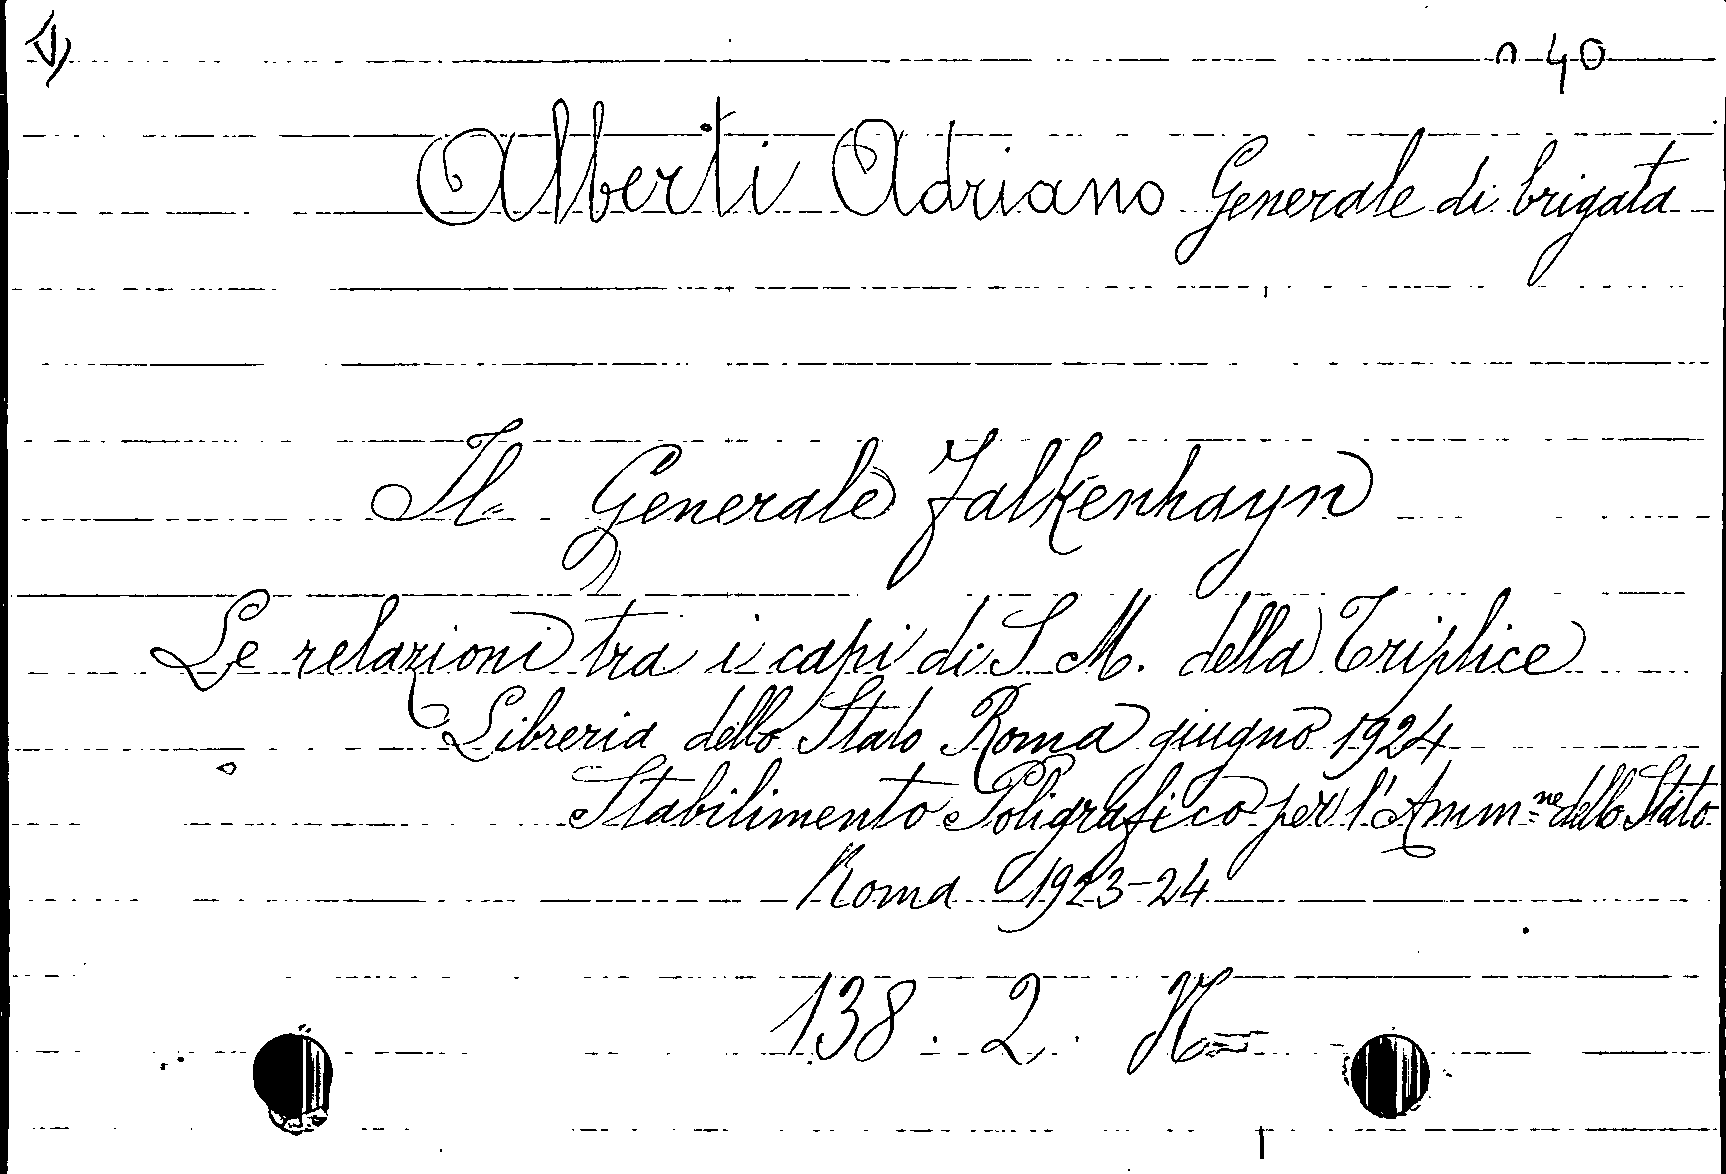 n 40
Alberti Adriano Generale di brigata
Il Generale Falkenhayn
Le relazioni tra i capi di S. M. della Triplice
Libreria dello Stato Roma giugno 1924
Stabilimento Poligrafico per l'Amm.ne dello Stato
Roma 1923-24
138. 2. H